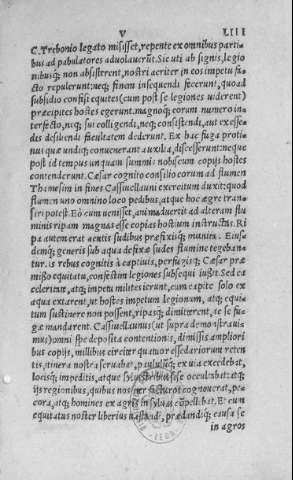 V LIII
C. Trebonio legato misisset, repente ex omnibus parti
bus ad pabulatores aduolauerūt. Sic uti ab signis, legio
nibusq; non absisterent, nostri acriter in eos impetu fa-
cto repulerunt: neq; finem insequendi fecerunt, quoad
subsidio confisi equites (cum post se legiones uiderent)
præcipites hostes egerunt. magnoq; eorum numero in-
terfecto, neq; sui colligendi, neq; consistendi, aut ex esse-
dis desiliendi facultatem dederunt. Ex hac fuga proti-
nus quæ undiq; conuenerant auxilia, discesserunt: neque
post id tempus unquam summis nobiscum copijs hostes
contenderunt. Cæsar cognito consilio eorum ad flumen
Thamesim in fines Cassiuellauni exercitum duxit: quod
flumen uno omnino loco pedibus, atque hoc ægre tran-
siri potest. Eò cum uenisset, animaduertit ad alteram flu
minis ripam magnas esse copias hostium instructas. Ri
pa autem erat acutis sudibus præfixisq; munita. Eiusd
demq; generis sub aqua defixæ sudes flumine tegeban-
tur. is rebus cognitis à captiuis, perfugisq; Cæsar præ
misso equitatu, confestim legiones subsequi iussit. Sed ea
celeritate, atq; impetu milites ierunt, cum capite solo ex
aqua extarent, ut hostes impetum legionum, atq; equita
tum sustinere non possent, ripasq; dimitterent, ac se fu-
gæ mandarent. Cassiuellaunus (ut supra demonstraui-
mus) omni spe deposita contentionis, dimissis ampliori
bus copijs, millibus circiter quatuor essedariorum reten
tis, itinera nostra seruabat, paululumq; ex uia excedebat,
locisq; impeditis, atque syluestribus sese occultabat. atq;
ijs regionibus, quibus nos iter facturos cognouerat, pæ-
cora, atq; homines ex agris in syluas cōpellebat. Et cum
equitatus noster liberius uastandi, prædandiq; causa se
in agros